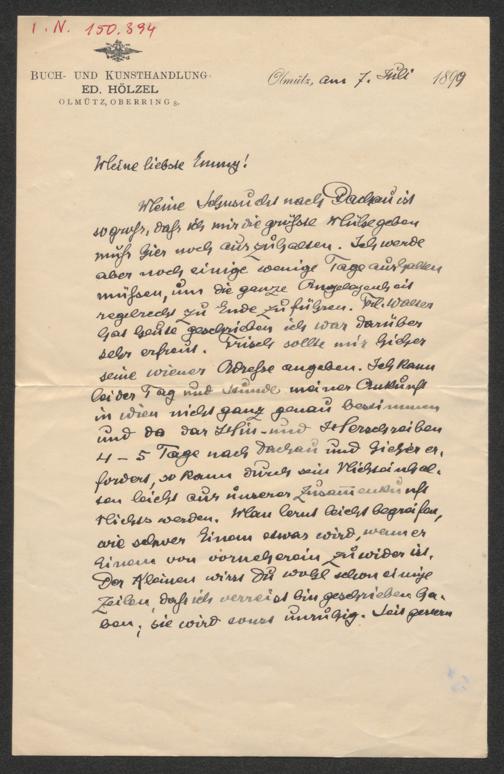 I. N. 150.394
BUCH- UND KUNSTHANDLUNG
ED. HÖLZEL
OLMÜTZ, OBERRING 8.
Olmütz, am 7. Juli 1899
Meine liebste Emmy!
Meine Sehnsucht nach Dachau ist
so groß, daß ich mir die größte Mühe geben
muß hier noch auszuhalten. Ich werde
aber noch einige wenige Tage aushalten
müssen, um die ganze Angelegenheit
regelrecht zu Ende zu führen. Frl. Walter
hat heute geschrieben ich war darüber
sehr erfreut. sollte mir hieher
seine wiener Adresse angeben. Ich kann
bei der Tag und Stunde meiner Ankunft
in Wien nicht ganz genau bestimmen
und da das Hin- und Herschreiben
4-5 Tage nach Dachau und hieher er-
fordert, so kann durch sein Nichteinhal-
ten leicht aus unserer Zusammenkunft
Nichts werden. Man lernt leicht begreifen,
wie schwer Einem etwas wird, wenn er
Einem von vorneherein zuwider ist.
Der Kleinen wirst Du wohl schon einige
Zeilen, daß ich verreist bin geschrieben ha-
ben, sie wird sonst unruhig. Seit gestern